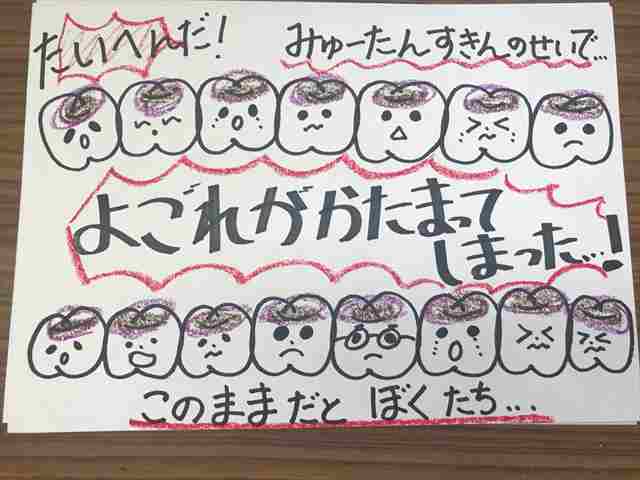 たいへんだ!
みゅーたんすきんのせいで…
よごれがかたまって
しまった…!
このままだと ぼくたち…